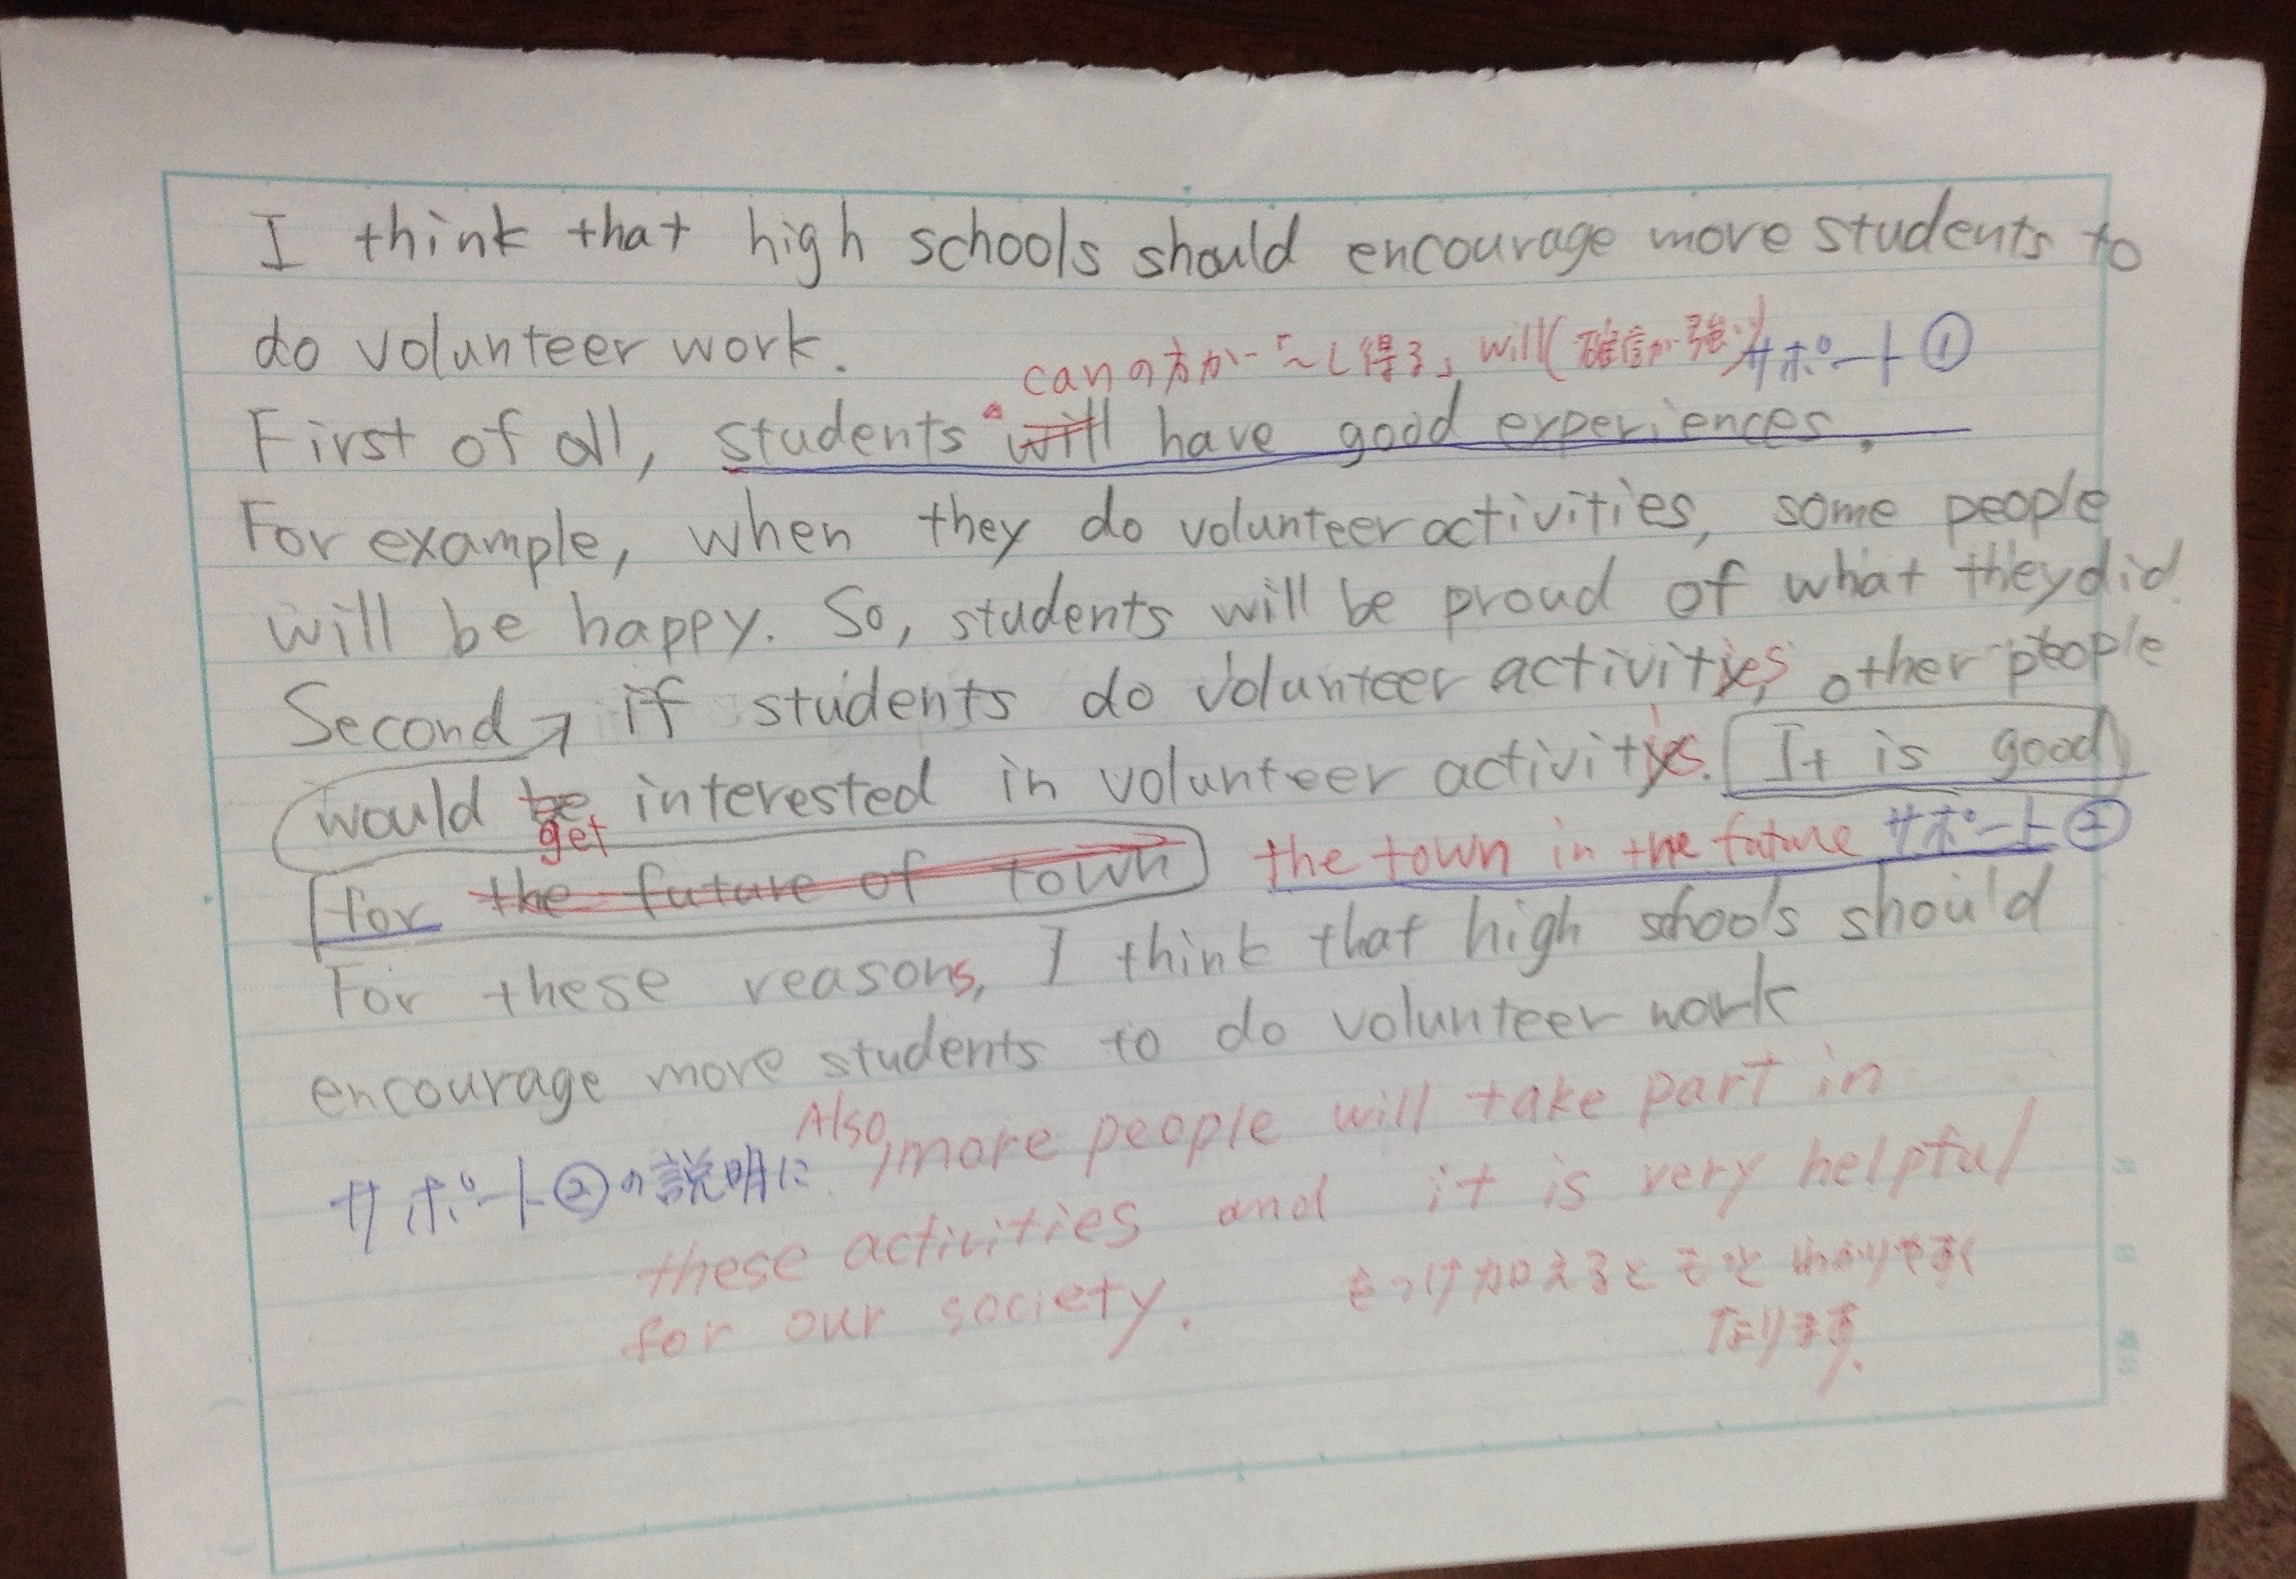 I think that high schools should encourage more students to
do volunteer work.
canの方が「~し得る」 will(確信が強い) サポート①
First of all, students will have good experiences.
For example, when they do volunteer activities, some people
will be happy. So, students will be proud of what they did.
Second, if students do volunteer activities, other people
would be interested in volunteer activities. It is good
get
for the future of town the town in the future サポート②
For these reasons, I think that high schools should
encourage more students to do volunteer work
サポート②の説明に Also, more people will take part in
these activities and it is very helpful
for our society. をつけ加えるともっとわかりやすく
なります。